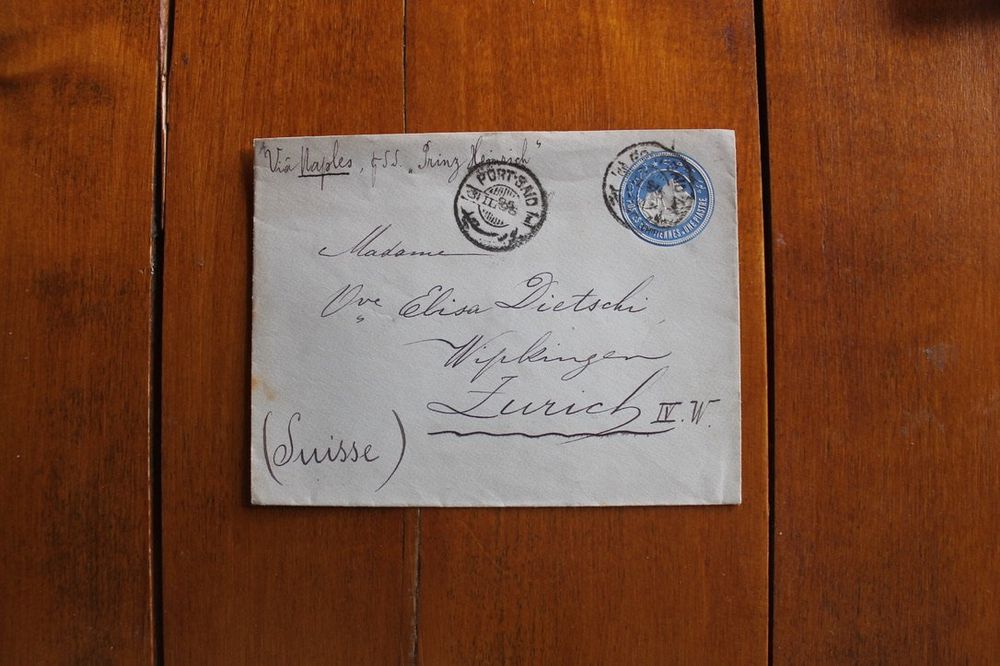 Via Naples, p SS. „Prinz Heinrich“
PORT-SAID
Madame
Vve Elisa Dietschi
Wipkingen
Zurich IV. W.
(Suisse)
UNE PIASTRE